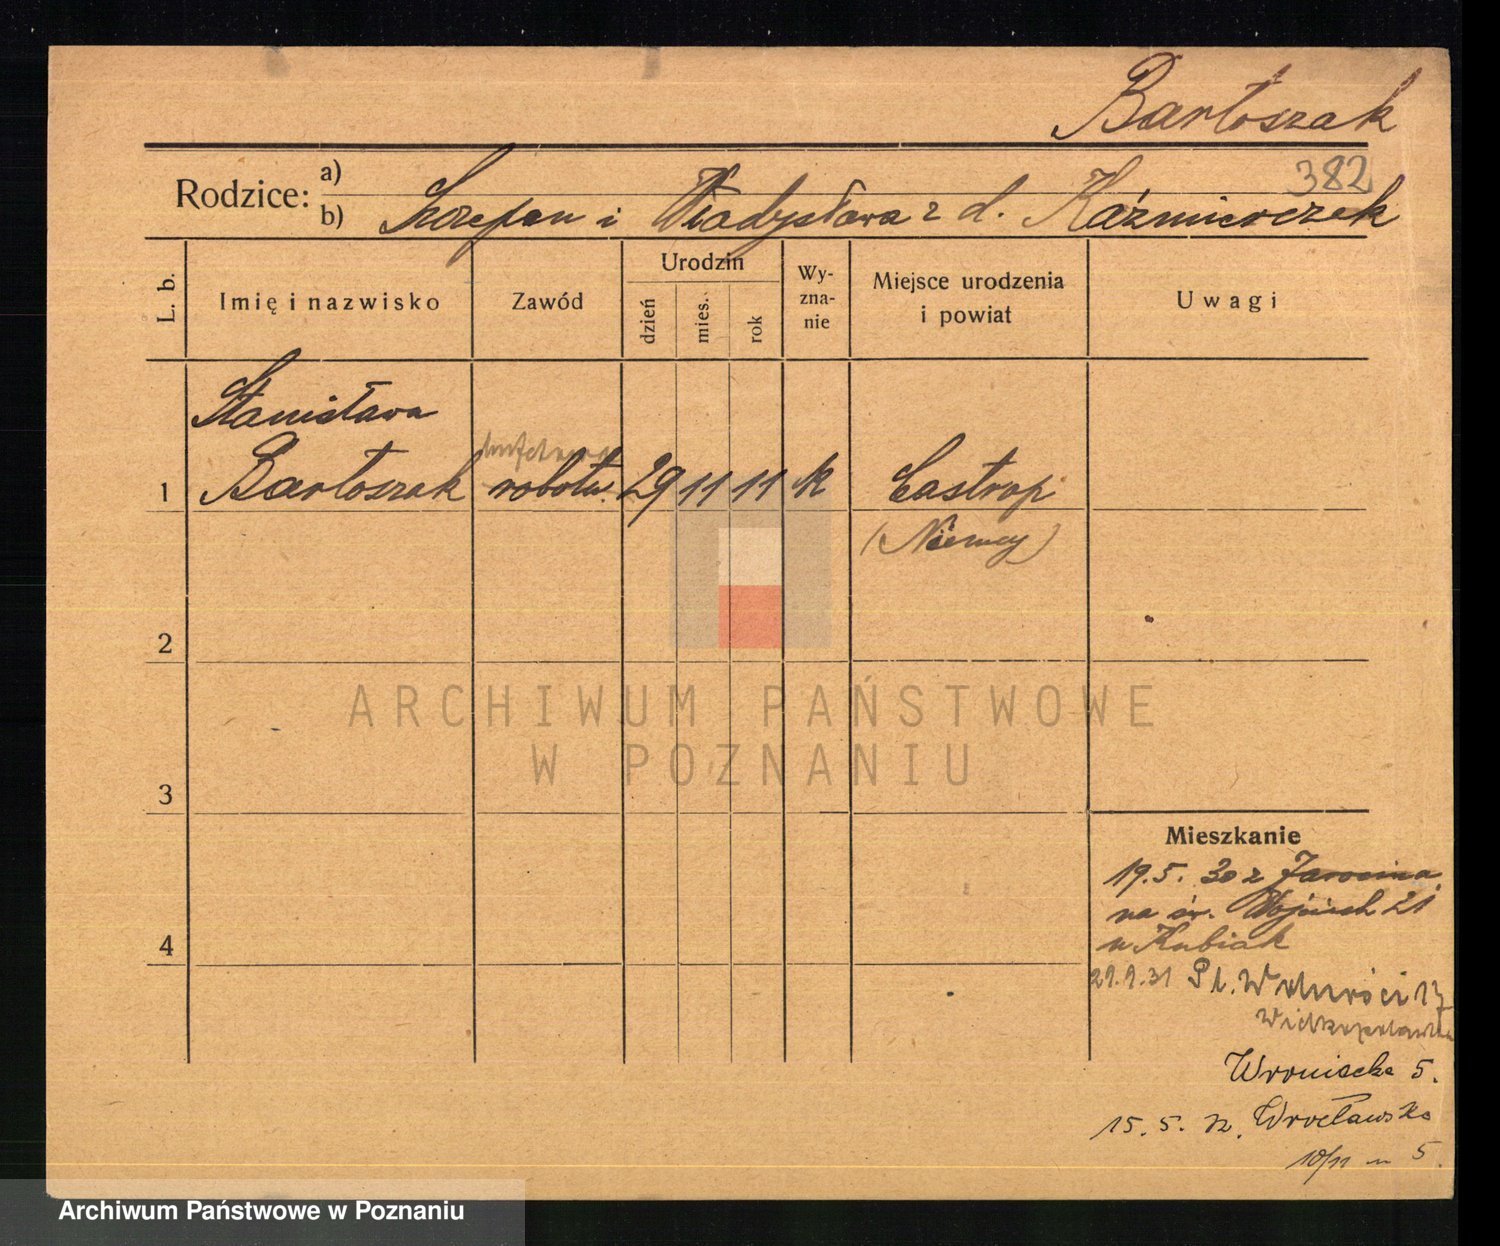 Bartoszak
382
Rodzice: a)
b) Szczepan i Władysława z d. Kaźmierczak
L. b.
Imię i nazwisko
Zawód
Urodzin
dzień
mies.
rok
Wy-
zna-
nie
Miejsce urodzenia
i powiat
Uwagi
Stanisława
1 Bartoszak robotn. 29 11 11 k Castrop
(Niemcy)
2
ARCHIWUM PAŃSTWOWE
W POZNANIU
3
Mieszkanie
19.5. 30 z Jarocina
na św. Wojciech 21
u Kubiak
4
29.9.31 Pl. Wolności 17
Wielkopolanka
Wroniecka 5.
15. 5. Wrocławska
10/11 5.
Archiwum Państwowe w Poznaniu